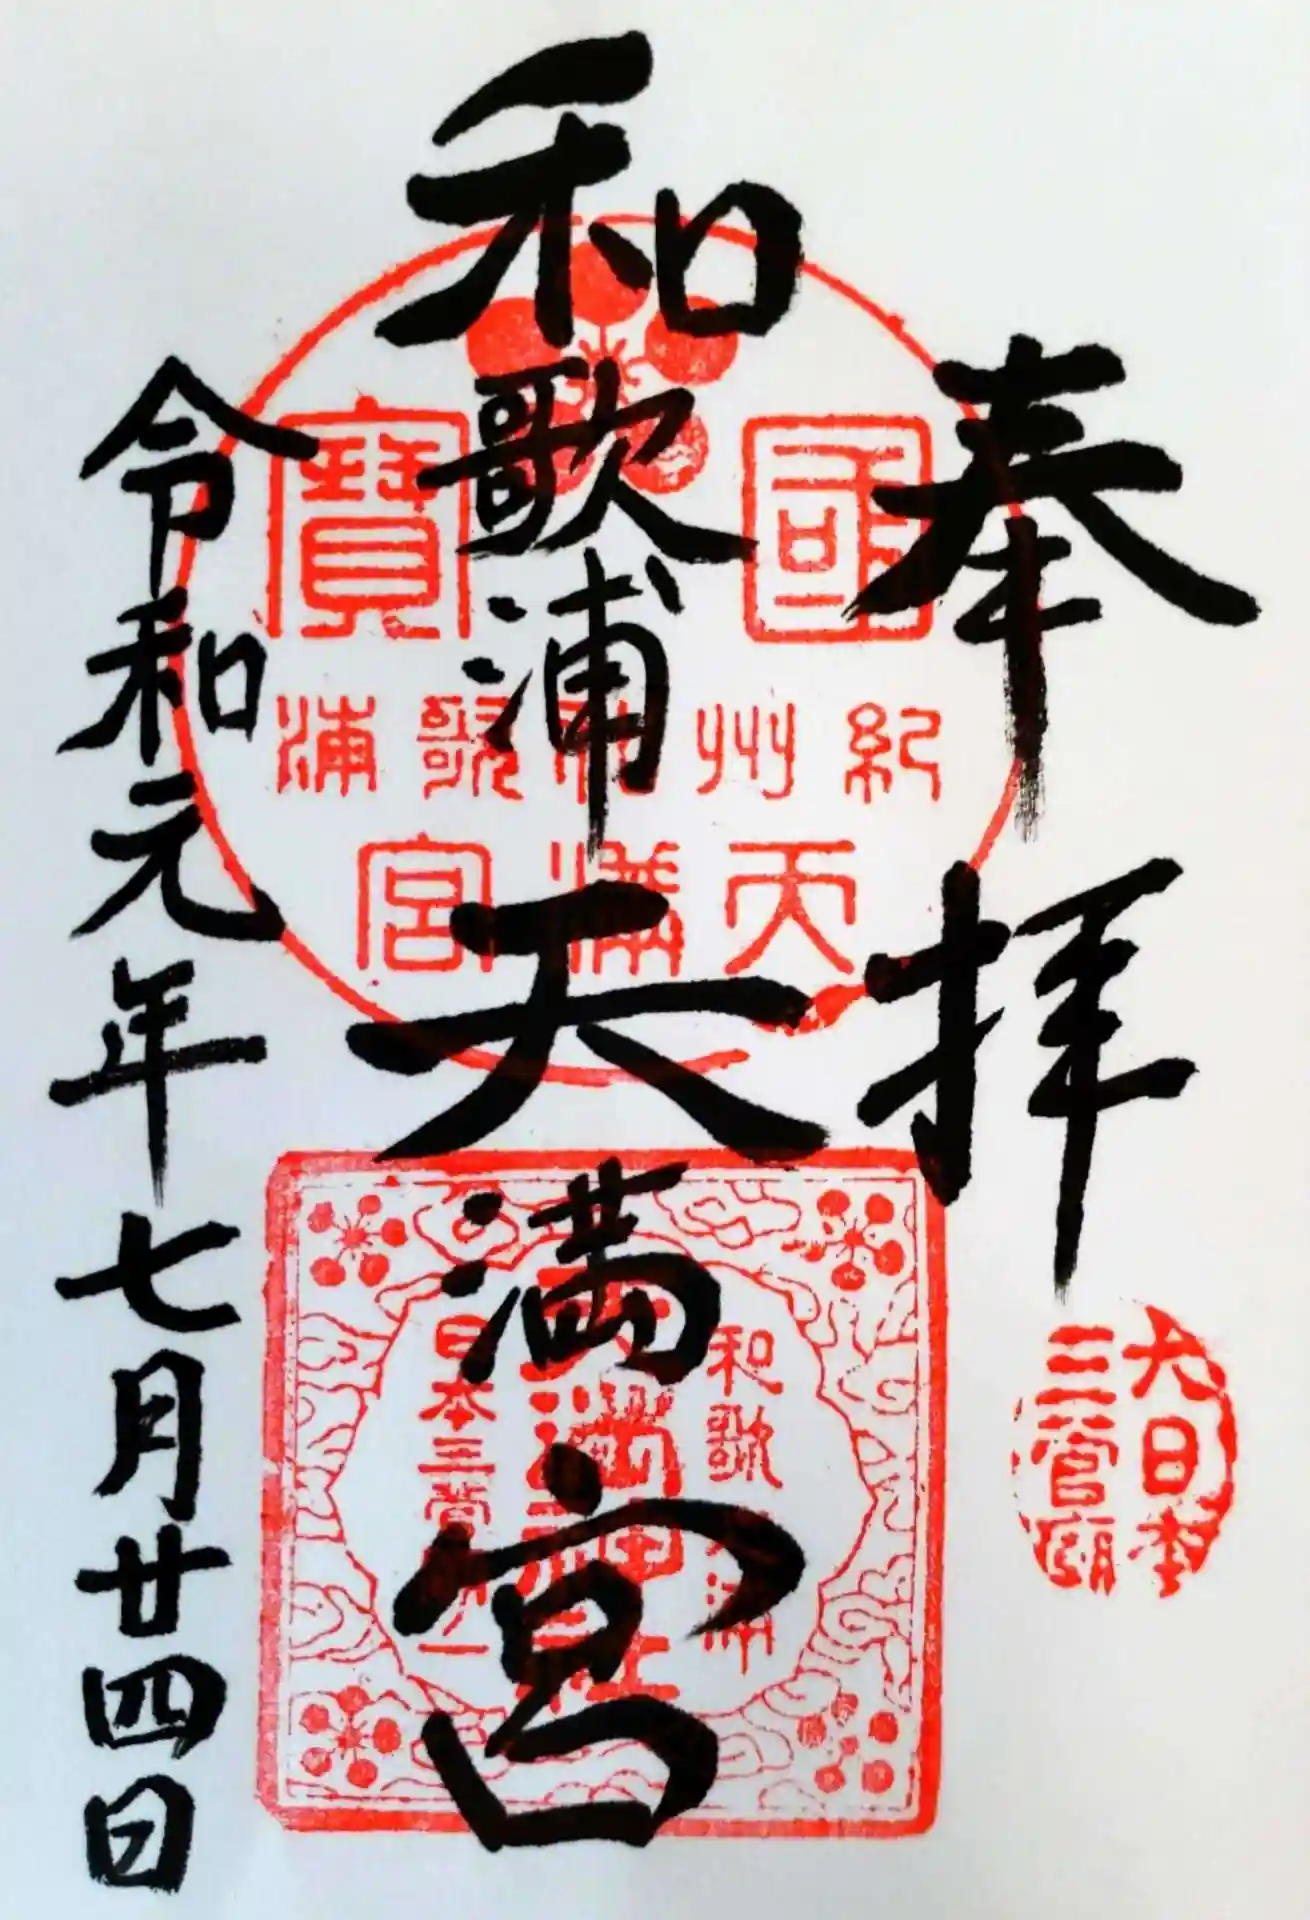 奉拝
大日本
三菅廟
和歌浦天満宮
國寶
紀州和歌浦
天満宮
和歌浦
日本三菅廟之一
令和元年七月廿四日